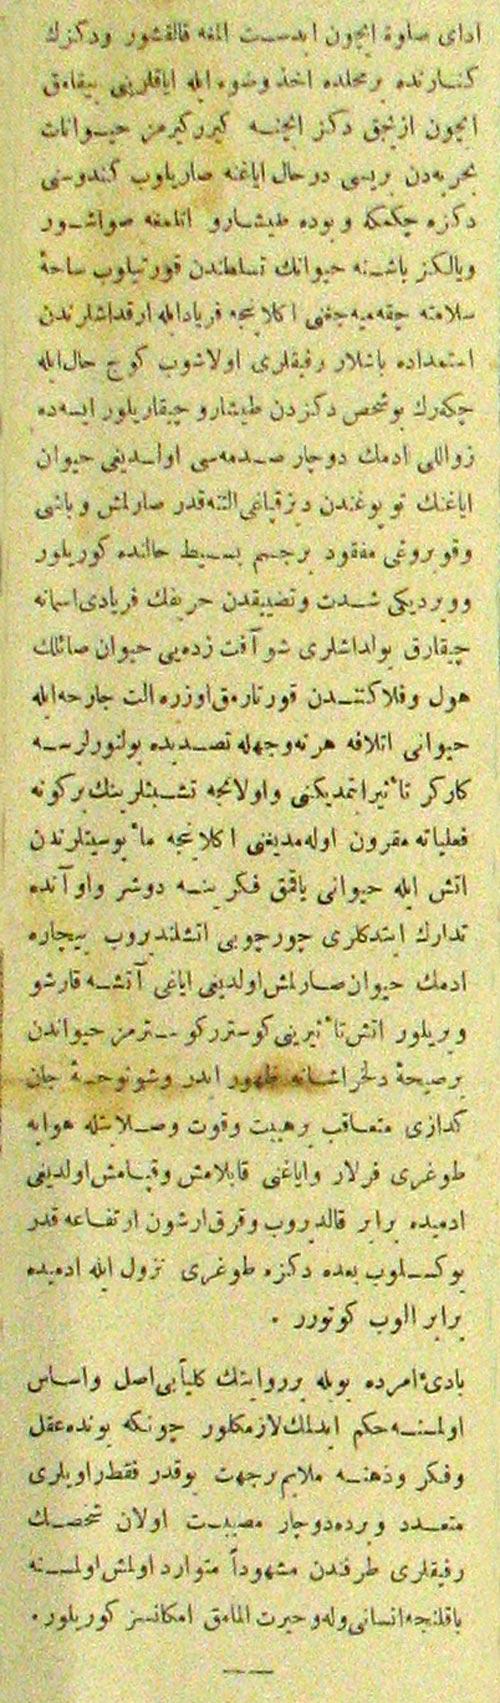 ادای صلوة ایچون ابدست المغه قالقشور ودكزك
كنارنده بر محلده اخذ وضوء ایله ایاقلرینی ییقامق
ایچون ازیجق دكز ایچنه كیرر كیرمز حیوانات
بحریه‌دن بریسی درحال ایاغنه صاریلوب كندوسنی
دكزه چكمكه و بوده طیشارو اتلامغه صواشور
ویالكز باشنه حیوانك تسلطندن قورتیلوب ساحهٔ
سلامته چقه‌میه‌جغنی اكلاینجه فریاد ایله ارقداشلرندن
استمداده باشلار رفیقلری اولاشوب كوج حال ایله
چكه‌رك بو شخص دكزدن طیشارو چیقاریلور ایسه‌ده
زواللی ادمك دوچار صدمه‌سی اولدیغی حیوان
ایاغنك طوپوغندن دیزقپاغی التنه‌قدر صارلمش و باشی
وقویروغی مفقود بر جسم بسیط حالنده كوریلور
وویردیكی شدت وتضییقدن حریفك فریادی اسمانه
چیقارق یولداشلری شو آفت زده‌یی حیوان صائلك
هول وفلاكتندن قورتارمق اوزره الت جارحه ایله
حیوانی اتلافه هر نه‌وجهله تصدیده بولنورلرسه
كاركر تأثیر ایتمدیكنی و اولانجه تشبثلرینك بركونه
فعلیاته مقرون اوله‌مدیغنی اكلاینجه مأیوسیتلرندن
اتش ایله حیوانی یاقمق فكرینه دوشر واو آنده
تدارك ایتدكلری چورچوپی اتشلندیروب بیچاره
ادمك حیوان صارلمش اولدیغی ایاغی آتشه قارشو
ویریلور اتش تأثیرینی كوسترر كوسترمز حیواندن
بر صیحهٔ دلخراشانه ظهور ایدر وشو نوحهٔ جان
كدازی متعاقب بر هیبت وقوت وصلابتله هوایه
طوغری فرلار وایاغنی قابلامش وقپامش اولدیغی
ادمیده برابر قالدیروب وقرق ارشون ارتفاعه قدر
یوكسلوب بعده دكزه طوغری نزول ایله ادمیده
برابر الوب كوتورر .
بادئ امرده بویله بر روایتك كلیاً بی اصل واساس
اولمسنه حكم ایدلمك لازمكلور چونكه بونده عقل
وفكر وذهنه ملایم بر جهت یوقدر فقط راویلری
متعدد وبرده دوچار مصیبت اولان شخصك
رفیقلری طرفندن مشهوداً متوارد اولمش اولمسنه
باقلنجه انسانی وله وحیرت المامق امكانسز كوریلور .